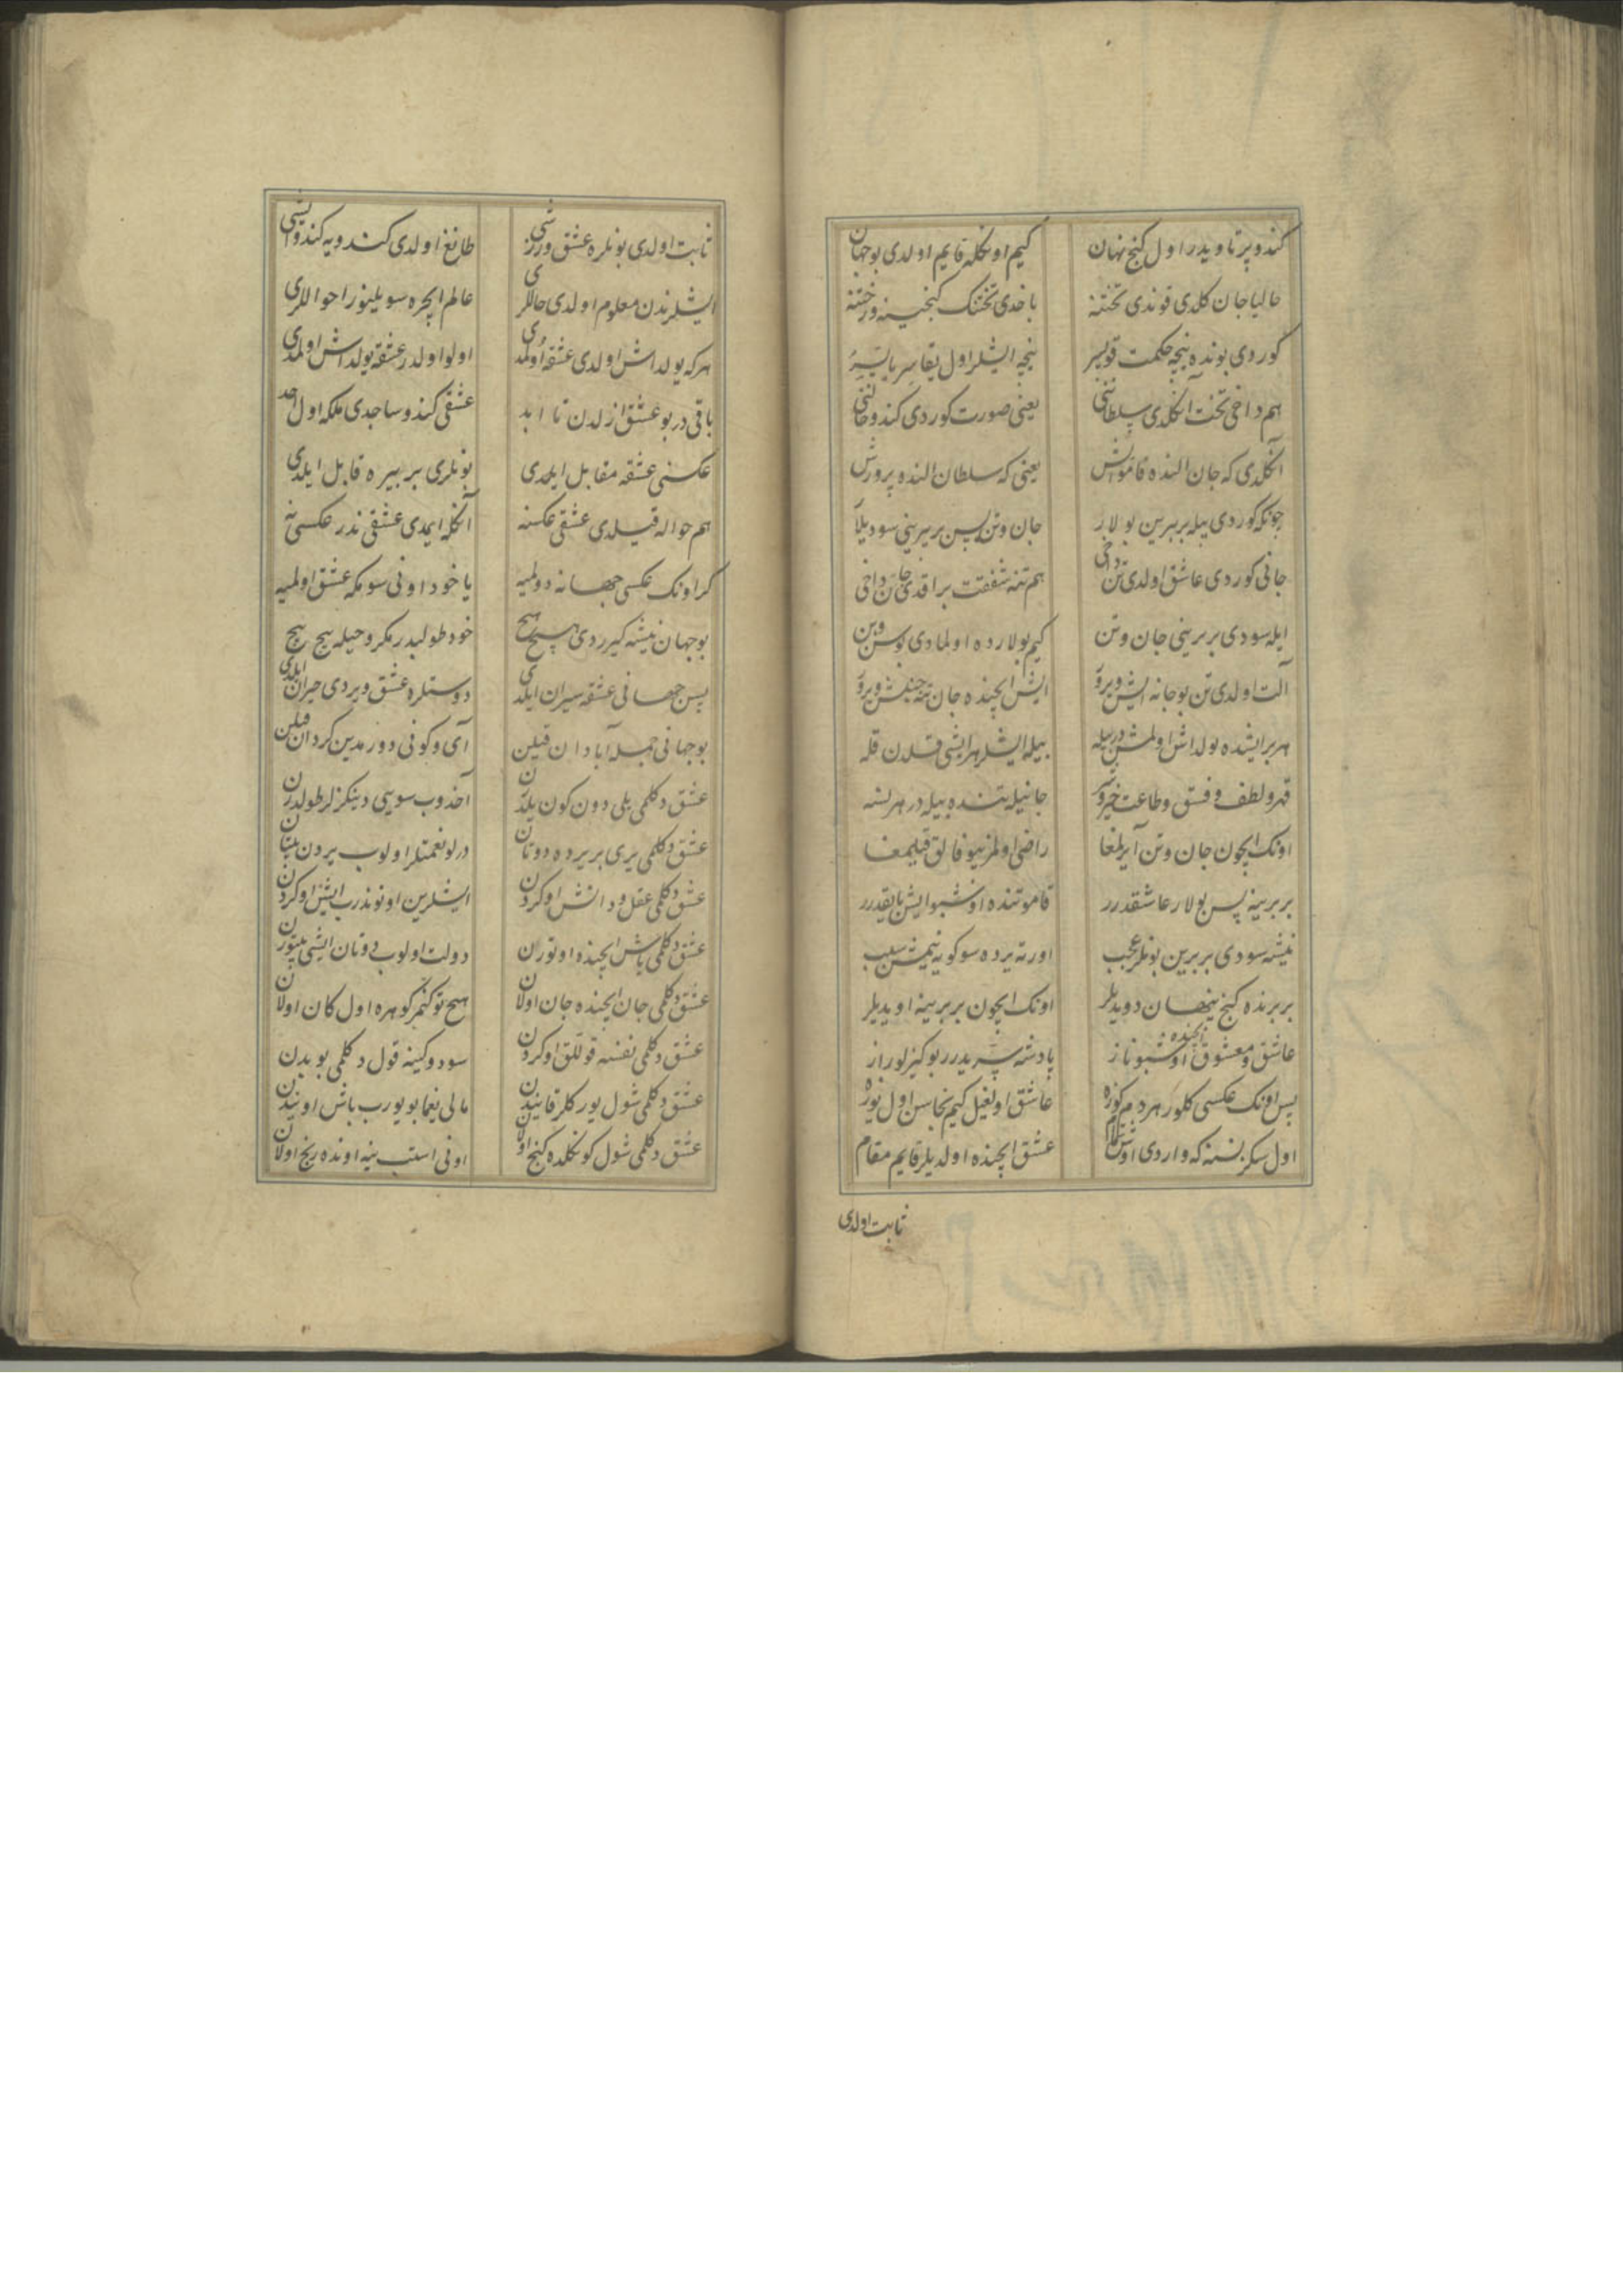 کندو پرتاویدر اول کنج نهان کیم اونکله قایم اولدی بو جهان
حالیا جان کلدی قوندی تختنه باخدی تختنک کنجینه و رختنه
کوردی بونده نیجه حکمت قویسر نیجه ایشلر اول یقاسر یاپیسر
هم داخی تخت آنکلدی سلطاننی یعنی صورت کوردی کندو جاننی
آنکلدی که جان النده قامو ایش یعنی که سلطان الندو پرورش
چونکه کوردی بیله بربرین بولار جان و تن پس بربرینی سودیلار
جانی کوردی عاشق اولدی تن داخی هم تنه شفقت براقدی جان داخی
ایله سودی بربرینی جان و تن کیم بولارده اولمادی بو سن و بن
آلت اولدی تن بو جانه ایش ویرو ایش ایچنده جان تنه جنبش ویرو
هر بر ایشده یولداش اولمش در بیله بیله ایشلر هر ایشی قلدن قله
قهر و لطف و فسق و طاعت خیر و شر جانیله تنده بیله در هر نسه
اونک ایچون جان و تن آیرلمغا راضی اولمز بیوفالق قیلمغا
بربرینه پس بولار عاشقدرر قامو تنده اوشبو ایش بایقدرر
نیشه سودی بربرین بونلر عجب اورته یرده سوکویه نیمش سبب
بربرنده کنج پنهان دویدیلر اونک ایچون بربرینه اویدیلر
عاشق و معشوق ایچنده اوشبو ناز پادشه سریدرر بو کیزلو راز
پس اونک عکسی کلور هر دم کوزه عاشق اولغیل کیم بخاسن اول یوزه
اول سکز نسنه که واردی اوش تمام عشق ایچنده اولدیلر قایم مقام
ثابت اولدی
ثابت اولدی بونلره عشق ورزشی طانغ اولدی کندویه کندو ایشی
ایشلرندن معلوم اولدی حاللری عالم ایچره سویلینور احواللری
هر که یولداش اولدی عشقه اولمدی اولو اولدر عشقه یولداش اولمدی
باقی در بو عشق ازلدن تا ابد عشقی کندو ساجدی ملکه اول احد
عکسنی عشقه مقابل ایلدی بونلری بربیره قابل ایلدی
هم حواله قیلدی عشقی عکسنه آنکله ایمدی عشقی ندر عکسی نه
کر اونک عکسی جهانه دولمیه یا خود اونی سومکه عشق اولمیه
بو جهان نیشه کیرردی هیچ هیچ خود طولیدر مکر و حیله پیچ پیچ
پس جهانی عشقه سیران ایلدی دوستلره عشق ویردی حیران ایلدی
بو جهانی جمله آبادان قیلن آی و کونی دور مدین کردان قیلن
عشق دکلمی یلی دون کون یلدرن آخدوب سویی دینکزلر طولدرن
عشق دکلمی یری بر یرده دوتان درلو نعمتلر اولوب یردن بیتان
عشق دکلمی عقل و دانش اوکردن ایشلرین اونوندرب ایش اوکردن
عشق دکلمی باش ایچنده اوتوران دولت اولوب دوتان ایشی بیتورن
عشق دکلمی جان ایچنده جان اولان هیچ توکنمز کوهره اول کان اولان
عشق دکلمی نفسه قوللق اوکردن سود و کینه قول دکلمی بو بدن
عشق دکلمی شول یورکلر قاینیدن مالی یغما بویورب باش اونیدن
عشق دکلمی شول کونکلده کنج اولان اونی استب ینه اونده رنج اولان